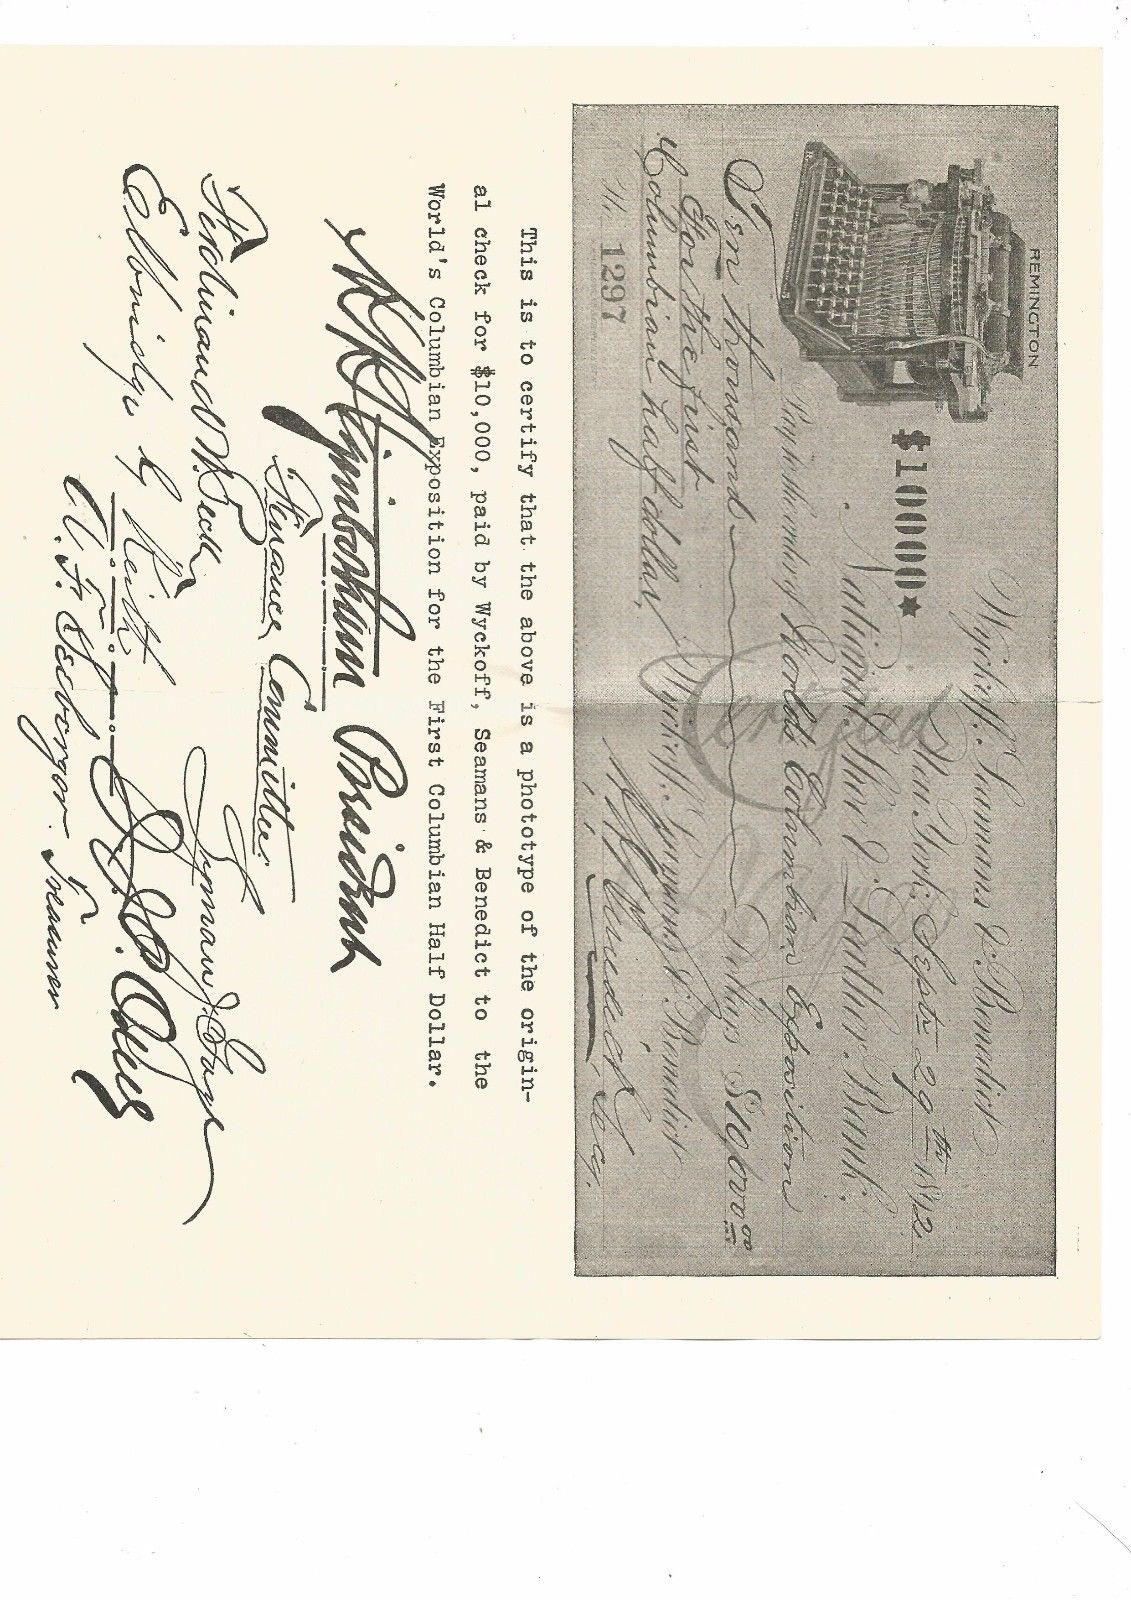 REMINGTON
Wyckoff, Seamans & Benedict
$10000★
New York, Sept. 29th 1892
National Shoe & Leather Bank,
Pay to the order of World's Columbian Exposition
Ten thousand Dollars $10,000 00
For the first
Columbian half dollar, Wyckoff, Seamans & Benedict
No. 1297
Benedict Secy.
Certified
This is to certify that the above is a phototype of the origin-
al check for $10,000, paid by Wyckoff, Seamans & Benedict to the
World's Columbian Exposition for the First Columbian Half Dollar.
H N Higinbotham President
Finance Committee.
Ferdinand W. Peck
Lyman J. Gage
Elbridge G Keith
A. F. Seeberger. Treasurer